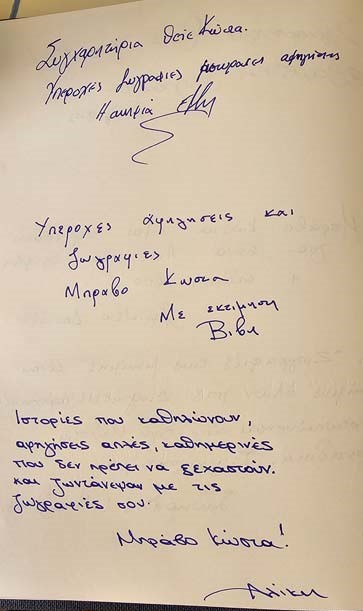 Συγχαρητήρια θείε Κώστα.
Υπέροχες ζωγραφιές υπέροχες αφηγήσεις
Η ανιψιά Έλλη
Υπεροχες αφηγησεις και
ζωγραφιες
Μπραβο Κωστα
Με εκτιμηση
Βιβη
Ιστορίες που καθηλώνουν,
αφηγήσεις απλές καθημερινές
που δεν πρέπει να ξεχαστούν.
και ζωντάνεψαν με τις
ζωγραφιές σου.
Μπράβο Κώστα!
Αλίκη